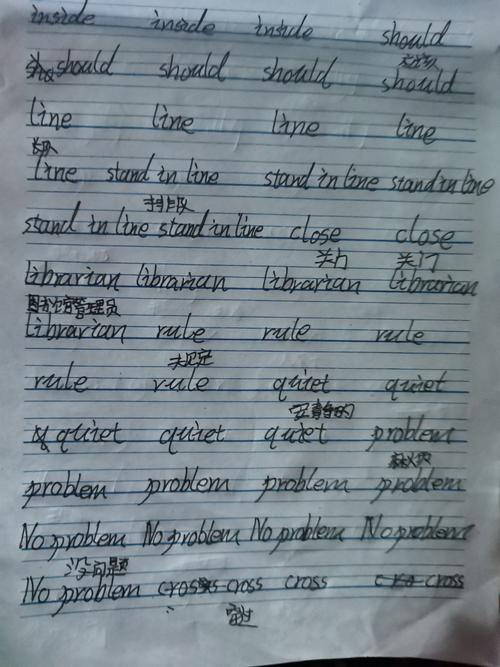 inside inside inside should
should should should should
line line line line
line stand in line stand in line stand in line
排队
stand in line stand in line close close
关门 关门
librarian librarian librarian librarian
图书馆管理员
librarian rule rule rule
rule rule quiet quiet
安静的
quiet quiet quiet problem
problem problem problem problem
No problem No problem No problem No problem
没问题
No problem cross cross cross cross